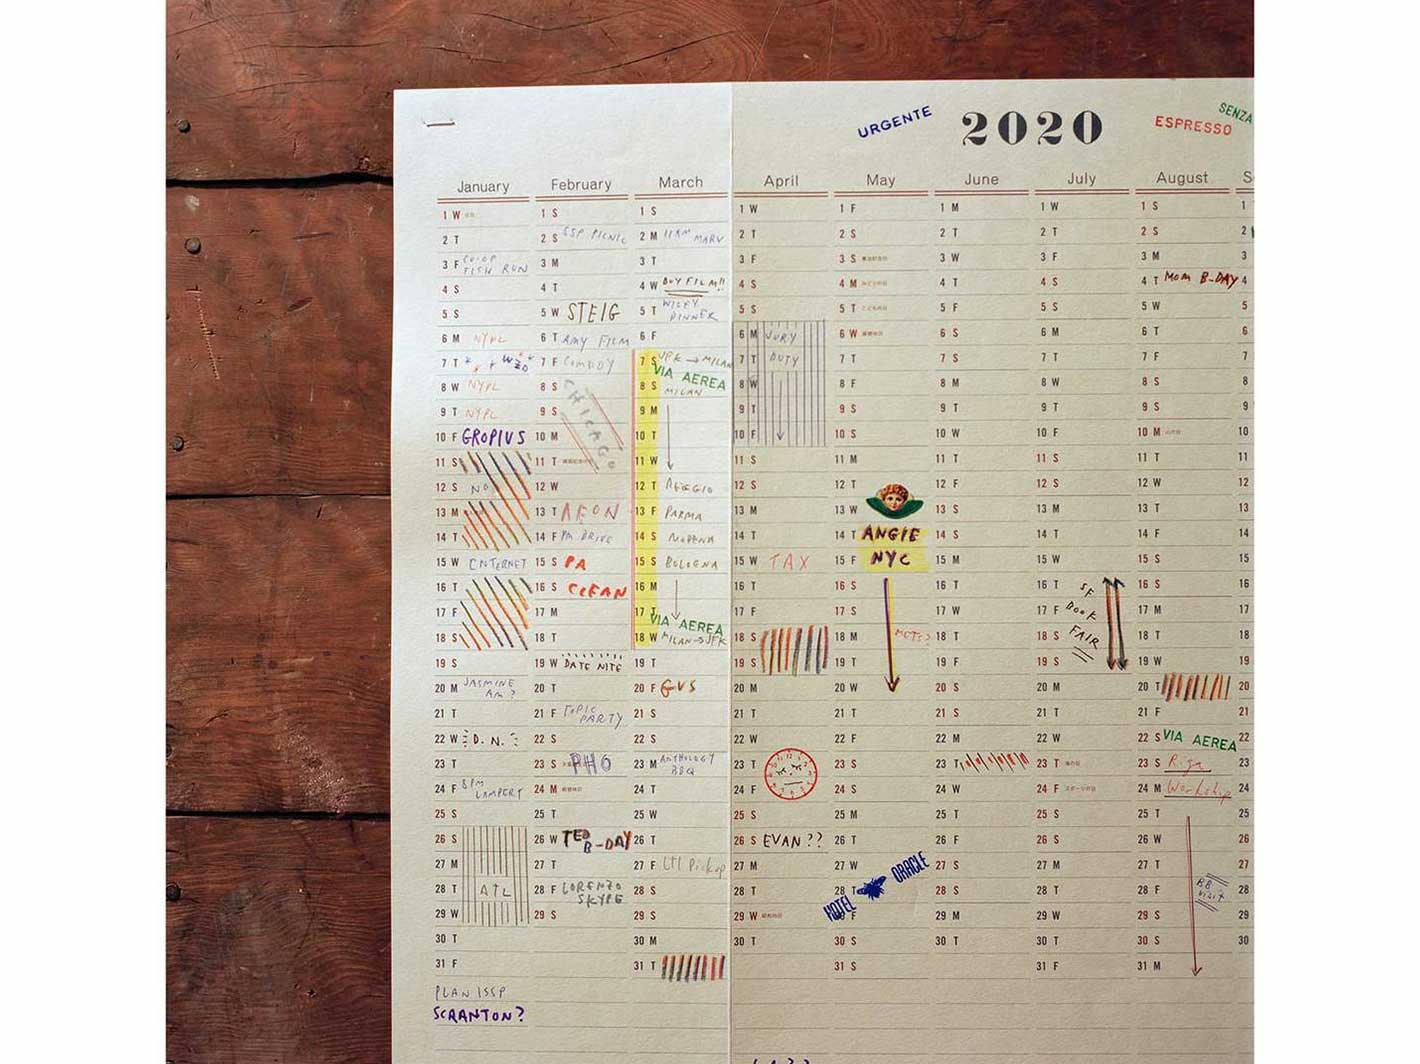 URGENTE
2020
ESPRESSO
SENZA
January
1 W
2 T
3 F CO-OP
FISH RUN
4 S
5 S
6 M NYPL
7 T
8 W NYPL
9 T NYPL
10 F GROPIUS
11 S
12 S NO
13 M
14 T
15 W INTERNET
16 T
17 F
18 S
19 S
20 M JASMINE
AM?
21 T
22 W D.N.
23 T
24 F 8PM
LAMPERT
25 S
26 S
27 M
28 T ATL
29 W
30 T
31 F
PLAN ISSP
SCRANTON?
February
1 S
2 S SSP PICNIC
3 M
4 T
5 W STEIG
6 T AMY FILM
7 F COMEDY
8 S CHICAGO
9 S
10 M
11 T
12 W
13 T AEON
14 F PA DRIVE
15 S PA
16 S CLEAN
17 M
18 T
19 W DATE NITE
20 T
21 F TOPIC
PARTY
22 S
23 S PHO
24 M
25 T
26 W TED
B-DAY
27 T
28 F LORENZO
SKYPE
29 S
March
1 S
2 M 11AM MARV
3 T
4 W BUY FILM!!
5 T WILEY
DINNER
6 F
7 S JFK → MILAN
VIA AEREA
8 S MILAN
9 M
10 T
11 W
12 T REGGIO
13 F PARMA
14 S MODENA
15 S BOLOGNA
16 M
17 T
VIA AEREA
18 W MILAN → JFK
19 T
20 F GUS
21 S
22 S
23 M ANTHOLOGY
BBQ
24 T
25 W
26 T
27 F LTI Pickup
28 S
29 S
30 M
31 T
April
1 W
2 T
3 F
4 S
5 S
6 M JURY
7 T DUTY
8 W
9 T
10 F
11 S
12 S
13 M
14 T
15 W TAX
16 T
17 F
18 S
19 S
20 M
21 T
22 W
23 T
24 F
25 S
26 S EVAN??
27 M
28 T
29 W
30 T
May
1 F
2 S
3 S
4 M
5 T
6 W
7 T
8 F
9 S
10 S
11 M
12 T
13 W
14 T ANGIE
15 F NYC
16 S
17 S
18 M
19 T
20 W
21 T
22 F
23 S
24 S
25 M
26 T
27 W
28 T
HOTEL ORACLE
29 F
30 S
31 S
June
1 M
2 T
3 W
4 T
5 F
6 S
7 S
8 M
9 T
10 W
11 T
12 F
13 S
14 S
15 M
16 T
17 W
18 T
19 F
20 S
21 S
22 M
23 T
24 W
25 T
26 F
27 S
28 S
29 M
30 T
July
1 W
2 T
3 F
4 S
5 S
6 M
7 T
8 W
9 T
10 F
11 S
12 S
13 M
14 T
15 W
16 T SF
17 F BOOK
18 S FAIR
19 S
20 M
21 T
22 W
23 T
24 F
25 S
26 S
27 M
28 T
29 W
30 T
31 F
August
1 S
2 S
3 M
4 T MOM B-DAY
5 W
6 T
7 F
8 S
9 S
10 M
11 T
12 W
13 T
14 F
15 S
16 S
17 M
18 T
19 W
20 T
21 F
22 S VIA AEREA
23 S Riga
24 M Workshop
25 T
26 W
27 T
28 F BB
visit
29 S
30 S
31 M